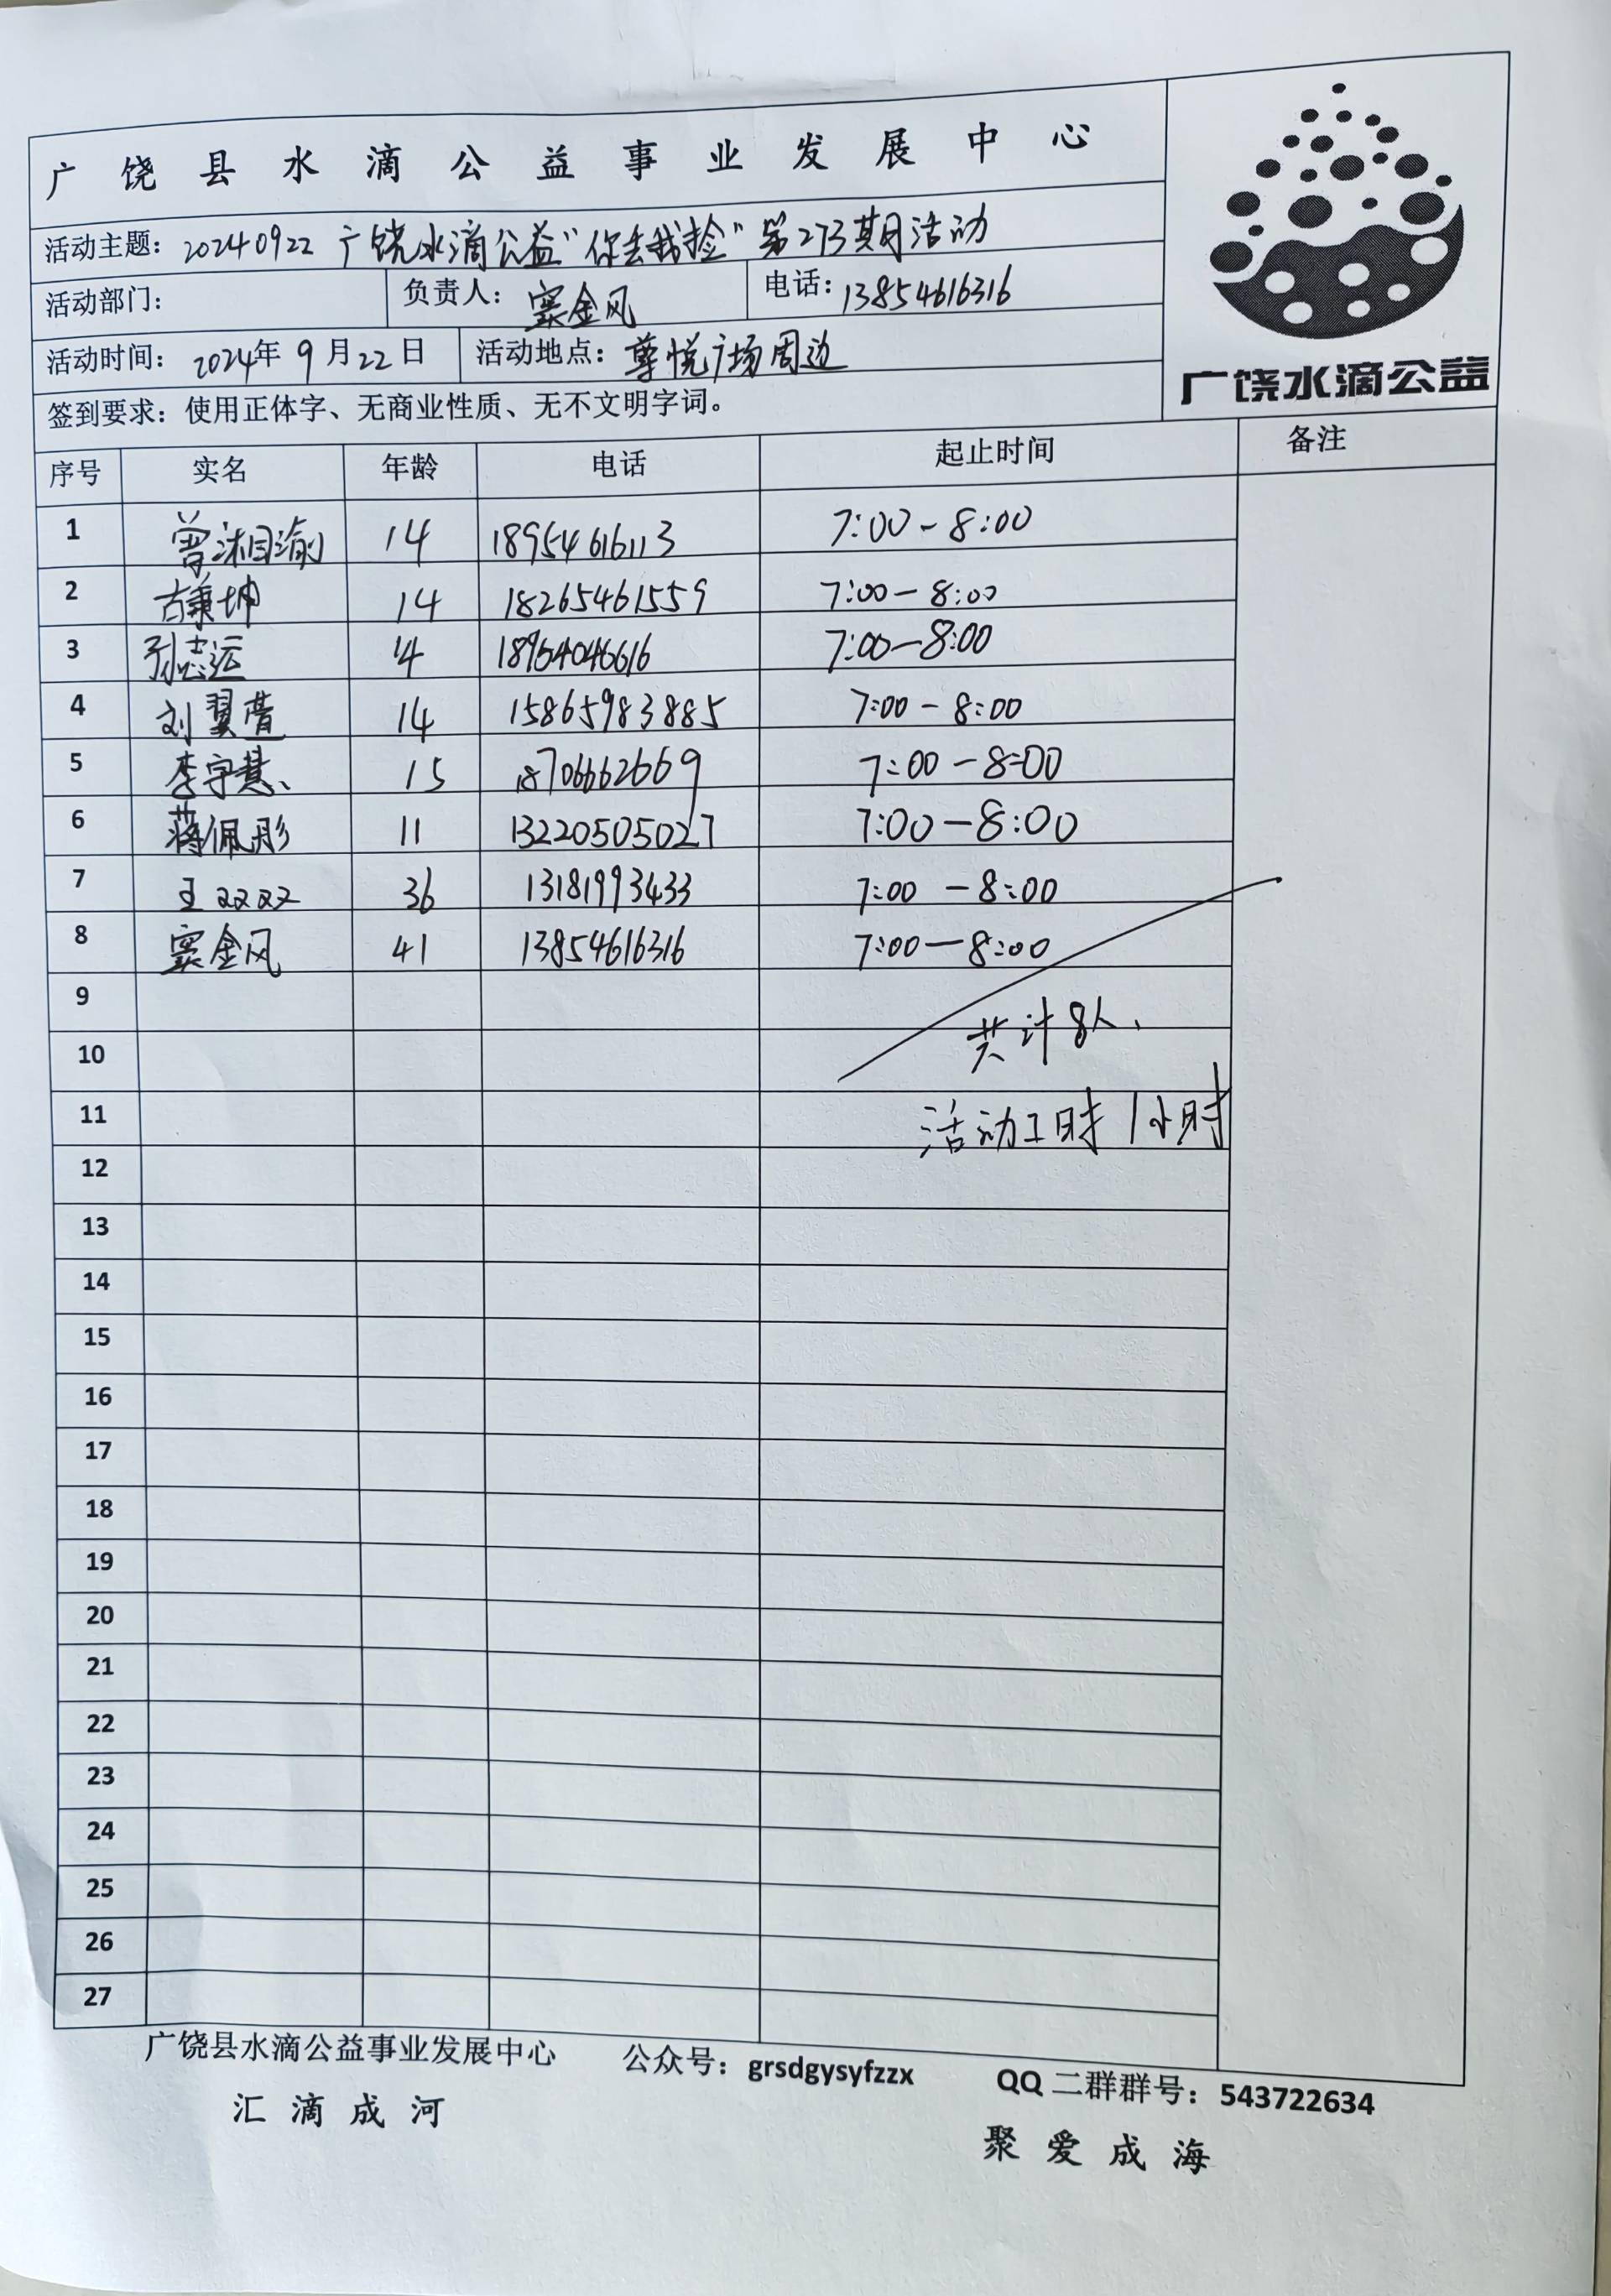 广饶县水滴公益事业发展中心
活动主题：20240922 广饶水滴公益“你丢我捡”第273期活动
活动部门： 负责人：窦金风 电话：13854616316
活动时间：2024年9月22日 活动地点：尊悦广场周边
签到要求：使用正体字、无商业性质、无不文明字词。
广饶水滴公益
序号 实名 年龄 电话 起止时间 备注
1 曾湘渝 14 18954616113 7:00-8:00
2 古秉坤 14 18265461559 7:00-8:00
3 张志运 14 18954046616 7:00-8:00
4 刘翼萱 14 15865983885 7:00-8:00
5 李宇慧、 15 18706662669 7:00-8:00
6 蒋佩彤 11 13220505027 7:00-8:00
7 王双双 36 13181993433 7:00-8:00
8 窦金风 41 13854616316 7:00-8:00
9
共计8人、
10
11 活动工时1小时
12
13
14
15
16
17
18
19
20
21
22
23
24
25
26
27
广饶县水滴公益事业发展中心 公众号：grsdgysyfzzx QQ二群群号：543722634
汇滴成河 聚爱成海